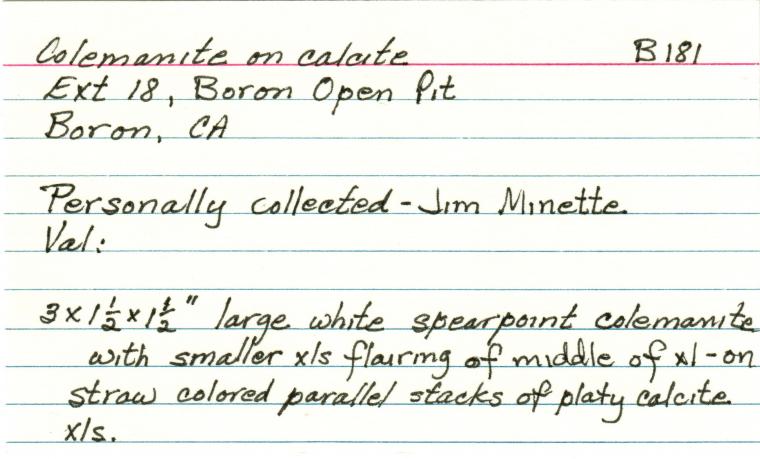 Colemanite on calcite B181
Ext 18, Boron Open Pit
Boron, CA
Personally collected - Jim Minette
Val:
3 x 1½ x 1½" large white spearpoint colemanite
with smaller xls flairing of middle of xl - on
straw colored parallel stacks of platy calcite
xls.